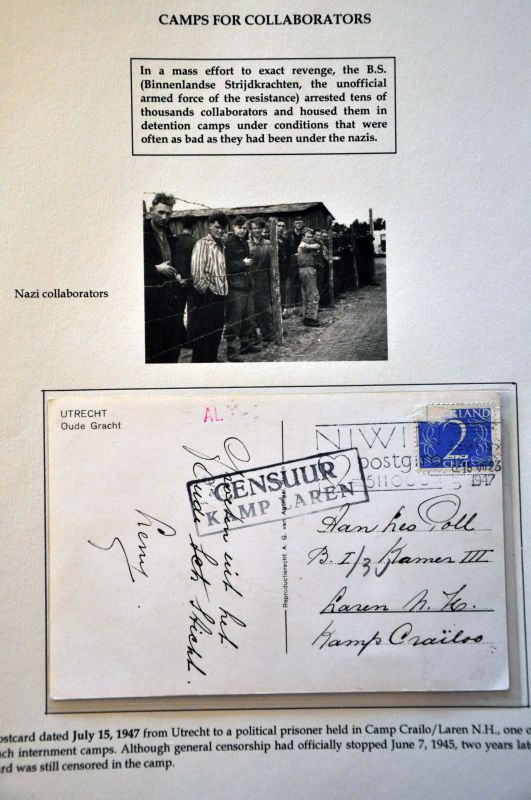 CAMPS FOR COLLABORATORS
In a mass effort to exact revenge, the B.S.
(Binnenlandse Strijdkrachten, the unofficial
armed force of the resistance) arrested tens of
thousands collaborators and housed them in
detention camps under conditions that were
often as bad as they had been under the nazis.
Nazi collaborators
UTRECHT
Oude Gracht
AL
NIWI
postgi
1947
LAND
2
CENT
CENSUUR
KAMP LAREN
Groeten uit het
Oude Sticht.
Reproductierecht A. G. van
Aan
B. I/3 Kamer III
Laren N. H.
Kamp Crailoo
ostcard dated July 15, 1947 from Utrecht to a political prisoner held in Camp Crailo/Laren N.H., one o
ch internment camps. Although general censorship had officially stopped June 7, 1945, two years late
rd was still censored in the camp.